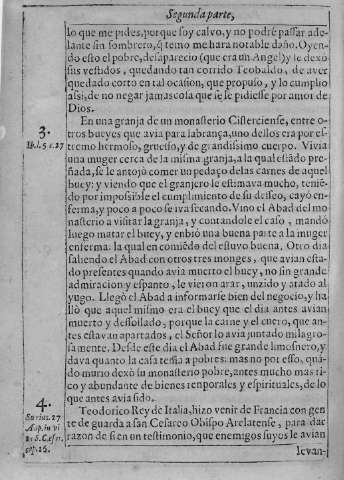 Segunda parte,
lo que me pides, porque soy calvo, y no podré passar ade-
lante sin sombrero, q̃ temo me hara notable daño. Oyen-
do esto el pobre, desaparecio (que era un Angel) y le dexò
sus vestidos, quedando tan corrido Teobaldo, de aver
quedado corto en tal ocasion, que propuso, y lo cumplio
assi, de no negar jamas cosa que se le pidiesse por amor de
Dios.
3.
En una granja de un monasterio Cisterciense, entre o-
tros bueyes que avia para labrança, uno dellos era por es-
tremo hermoso, gruesso, y de grandissimo cuerpo. Vivia
una muger cerca de la misma granja, a la qual estãdo pre-
ñada, se le antojò comer un pedaço de las carnes de aquel
buey: y viendo que el granjero le estimava mucho, teniẽ-
do por impossible el cumplimiento de su desseo, cayò en-
ferma, y poco a poco se iva secando. Vino el Abad del mo-
nasterio a visitar la granja, y contandole el caso, mandò
luego matar el buey, y enbiò una buena parte a la muger
enferma: la qual en comiẽdo del estuvo buena. Otro dia
saliendo el Abad con otros tres monges, que avian esta-
do presentes quando avia muerto el buey, no sin grande
admiracion y espanto, le vieron arar, unzido y atado al
yugo. Llegò el Abad a informarse bien del negocio, y ha-
llò que aquel mismo era el buey que el dia antes avian
muerto y dessollado, porque la carne y el cuero, que an-
tes estavan apartados, el Señor lo avia juntado milagro-
samente. Desde este dia el Abad fue grande limosnero, y
dava quanto la casa tenia a pobres: mas no por esso, quã-
do murio dexò su monasterio pobre, antes mucho mas ri-
co y abundante de bienes tenporales y espirituales, de lo
que antes avia sido.
4.
Surius. 27
Aug. in vi
cap. 26.
Teodorico Rey de Italia, hizo venir de Francia con gen
te de guarda a san Cesareo Obispo Arelatense, para dar
razon de si en un testimonio, que enemigos suyos le avian
levan-